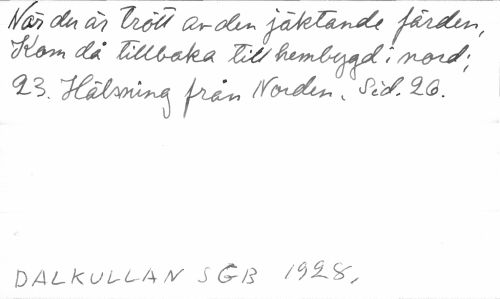 När du är trött av den jäktande färden,
Kom då tillbaka till hembygd i nord;
23. Hälsning från Norden. Sid. 26.
DALKULLAN SGB 1928,